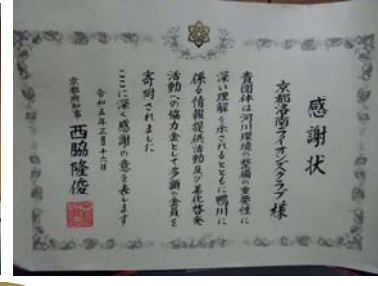 感謝状
京都洛南ライオンズクラブ様
貴団体は河川環境の整備の重要性に
深い理解を示されるとともに鴨川に
係る情報提供活動及び美化啓発
活動への協力金として多額の金員を
寄附されました
ここに深く感謝の意を表します
令和五年三月十六日
京都府知事 西脇隆俊